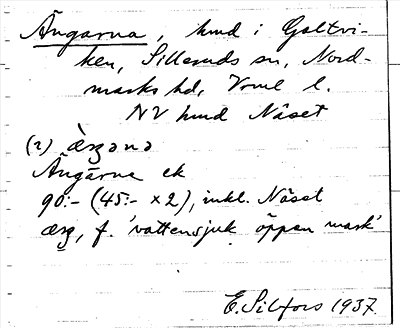 Ängarna, hmd i Galtvi-
ken, Silleruds sn, Nord-
marks hd, Vrml l.
NV hmd Näset
(2) ærgənə
Ängarne ek
90:- (45:- x2), inkl. Näset
ærg, f. 'vattensjuk öppen mark'
E. Silfors 1937